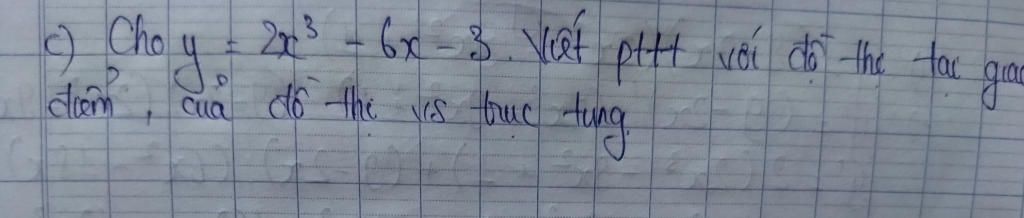 c) Cho y = 2x³ - 6x - 3. Viết pttt với đồ thị tại giao
điểm, của đồ thị vs trục tung.